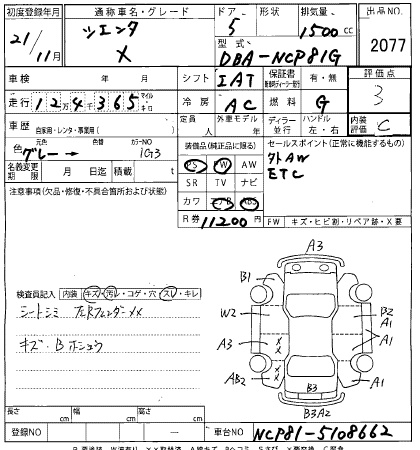 初度登録年月 通称車名・グレード ドア 形状 排気量 出品NO
21/11月 シエンタ X 5 1500cc 2077
型式 DBA-NCP81G
車検 年 月 シフト IAT 保証書 有・無 評価点 3
走行 124365 マイル キロ 冷房 AC 燃料 G
定員 人 外車モデル 年 ディーラー 並行 ハンドル 左・右 内装評価 C
車歴 自家用・レンタ・事業用( )
色 元色 グレー→ 色替 カラーNO 1G3
装備品(純正品に限る) セールスポイント(正常に機能するもの)
名義変更期限 月 日迄 積載 t
PS PW AW
SR TV ナビ
カワ エアB ABS
外AW
ETC
R券 11200円
注意事項(欠品・修復・不具合箇所および状態)
FW キズ・ヒビ割・リペア跡・X要
検査員記入 内装 キズ・汚レ・コゲ・穴・スレ・キレ
シートシミ 左Rフェンダー××
キズ・B ホシュウ
A3
B1
W2 B2
A3 A1
AB2 A1
B3
B3A2
長さ cm 幅 cm 高さ cm
登録NO — 車台NO NCP81-5108662